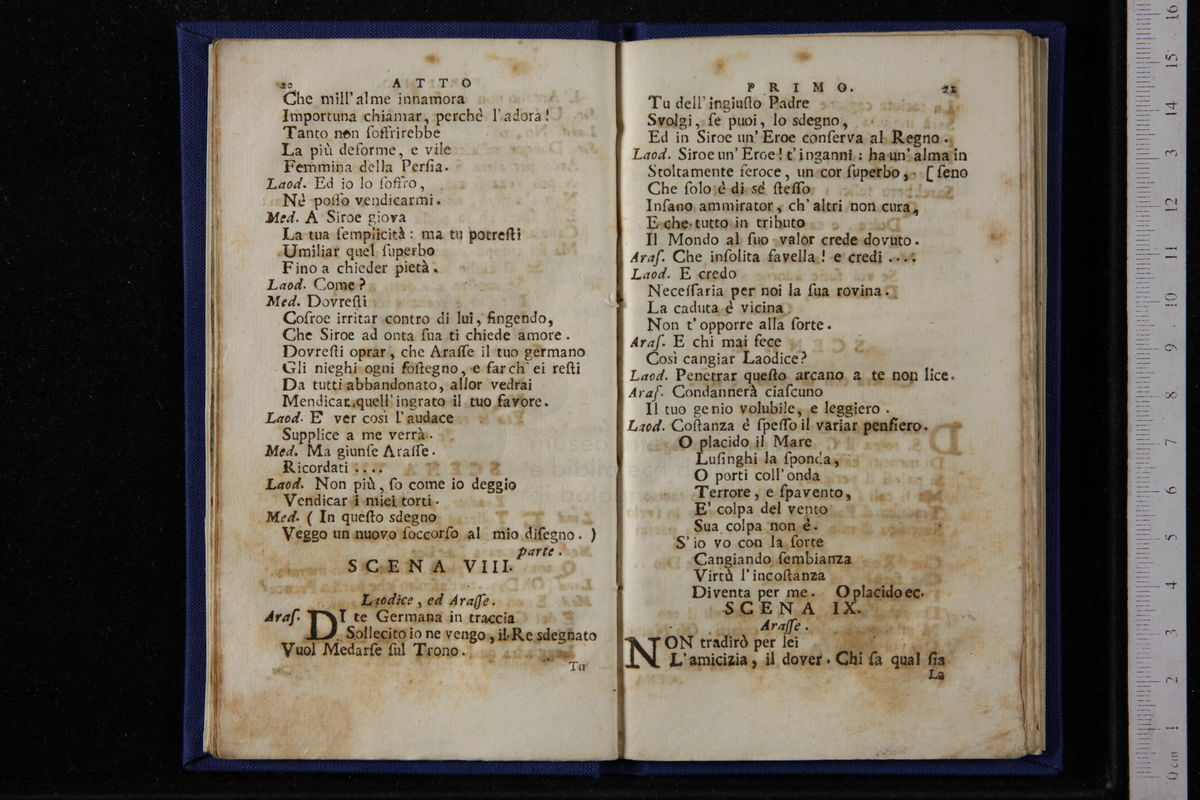 20 ATTO
Che mill' alme innamora
Importuna chiamar, perchè l'adora!
Tanto non soffrirebbe
La più deforme, e vile
Femmina della Persia.
Laod. Ed io lo soffro,
Nè posso vendicarmi.
Med. A Siroe giova
La tua semplicità: ma tu potresti
Umiliar quel superbo
Fino a chieder pietà.
Laod. Come?
Med. Dovresti
Cosroe irritar contro di lui, fingendo,
Che Siroe ad onta sua ti chiede amore.
Dovresti oprar, che Arasse il tuo germano
Gli nieghi ogni sostegno, e far ch' ei resti
Da tutti abbandonato, allor vedrai
Mendicar quell' ingrato il tuo favore.
Laod. E' ver così l'audace
Supplice a me verrà.
Med. Ma giunse Arasse.
Ricordati ....
Laod. Non più, so come io deggio
Vendicar i miei torti.
Med. ( In questo sdegno
Veggo un nuovo soccorso al mio disegno. )
parte.
SCENA VIII.
Laodice, ed Arasse.
Aras. DI te Germana in traccia
Sollecito io ne vengo, il Re sdegnato
Vuol Medarse sul Trono.
Tu
PRIMO. 21
Tu dell' ingiusto Padre
Svolgi, se puoi, lo sdegno,
Ed in Siroe un' Eroe conserva al Regno.
Laod. Siroe un' Eroe! t'inganni: ha un' alma in
Stoltamente feroce, un cor superbo, [ seno
Che solo è di sé stesso
Insano ammirator, ch' altri non cura,
E che tutto in tributo
Il Mondo al suo valor crede dovuto.
Aras. Che insolita favella! e credi ....
Laod. E credo
Necessaria per noi la sua rovina.
La caduta è vicina
Non t'opporre alla sorte.
Aras. E chi mai fece
Così cangiar Laodice?
Laod. Penetrar questo arcano a te non lice.
Aras. Condannerà ciascuno
Il tuo genio volubile, e leggiero.
Laod. Costanza é spesso il variar pensiero.
O placido il Mare
Lusinghi la sponda,
O porti coll' onda
Terrore, e spavento,
E' colpa del vento
Sua colpa non è.
S' io vo con la sorte
Cangiando sembianza
Virtù l'incostanza
Diventa per me. O placido ec.
SCENA IX.
Arasse.
NON tradirò per lei
L'amicizia, il dover. Chi sa qual sia
La
16
15
14
13
12
11
10
9
8
7
6
5
4
3
2
1
0 cm